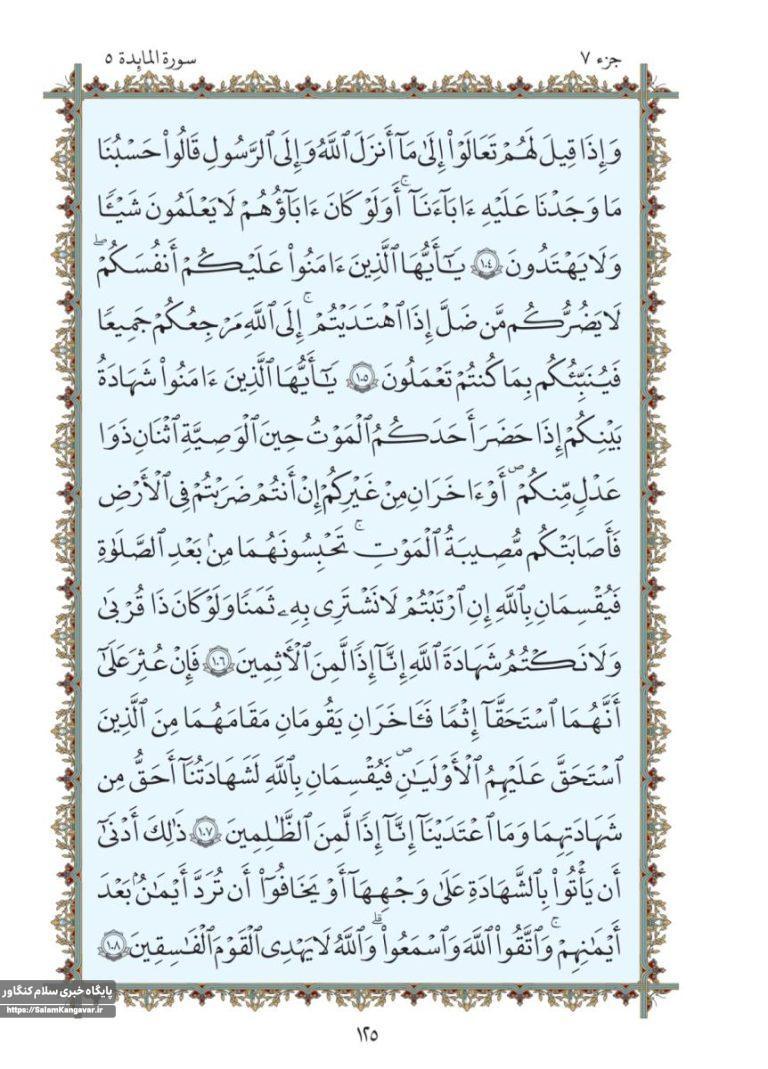 جزء ٧
سورة المایدة ٥
وَإِذَا قِيلَ لَهُمْ تَعَالَوْا۟ إِلَىٰ مَآ أَنزَلَ ٱللَّهُ وَإِلَى ٱلرَّسُولِ قَالُوا۟ حَسْبُنَا
مَا وَجَدْنَا عَلَيْهِ ءَابَآءَنَآ ۚ أَوَلَوْ كَانَ ءَابَآؤُهُمْ لَا يَعْلَمُونَ شَيْـًٔا
وَلَا يَهْتَدُونَ ١٠٤ يَـٰٓأَيُّهَا ٱلَّذِينَ ءَامَنُوا۟ عَلَيْكُمْ أَنفُسَكُمْ ۖ
لَا يَضُرُّكُم مَّن ضَلَّ إِذَا ٱهْتَدَيْتُمْ ۚ إِلَى ٱللَّهِ مَرْجِعُكُمْ جَمِيعًا
فَيُنَبِّئُكُم بِمَا كُنتُمْ تَعْمَلُونَ ١٠٥ يَـٰٓأَيُّهَا ٱلَّذِينَ ءَامَنُوا۟ شَهَادَةُ
بَيْنِكُمْ إِذَا حَضَرَ أَحَدَكُمُ ٱلْمَوْتُ حِينَ ٱلْوَصِيَّةِ ٱثْنَانِ ذَوَا
عَدْلٍ مِّنكُمْ ۖ أَوْ ءَاخَرَانِ مِنْ غَيْرِكُمْ إِنْ أَنتُمْ ضَرَبْتُمْ فِى ٱلْأَرْضِ
فَأَصَابَتْكُم مُّصِيبَةُ ٱلْمَوْتِ ۚ تَحْبِسُونَهُمَا مِنۢ بَعْدِ ٱلصَّلَوٰةِ
فَيُقْسِمَانِ بِٱللَّهِ إِنِ ٱرْتَبْتُمْ لَا نَشْتَرِى بِهِۦ ثَمَنًا وَلَوْ كَانَ ذَا قُرْبَىٰ
وَلَا نَكْتُمُ شَهَادَةَ ٱللَّهِ إِنَّآ إِذًا لَّمِنَ ٱلْـَٔاثِمِينَ ١٠٦ فَإِنْ عُثِرَ عَلَىٰٓ
أَنَّهُمَا ٱسْتَحَقَّآ إِثْمًا فَـَٔاخَرَانِ يَقُومَانِ مَقَامَهُمَا مِنَ ٱلَّذِينَ
ٱسْتَحَقَّ عَلَيْهِمُ ٱلْأَوْلَيَـٰنِ ۖ فَيُقْسِمَانِ بِٱللَّهِ لَشَهَادَتُنَآ أَحَقُّ مِن
شَهَادَتِهِمَا وَمَا ٱعْتَدَيْنَآ إِنَّآ إِذًا لَّمِنَ ٱلظَّـٰلِمِينَ ١٠٧ ذَٰلِكَ أَدْنَىٰٓ
أَن يَأْتُوا۟ بِٱلشَّهَادَةِ عَلَىٰ وَجْهِهَآ أَوْ يَخَافُوٓا۟ أَن تُرَدَّ أَيْمَـٰنٌۢ بَعْدَ
أَيْمَـٰنِهِمْ ۚ وَٱتَّقُوا۟ ٱللَّهَ وَٱسْمَعُوا۟ ۗ وَٱللَّهُ لَا يَهْدِى ٱلْقَوْمَ ٱلْفَـٰسِقِينَ ١٠٨
پایگاه خبری سلام کنگاور
https://SalamKangavar.ir
١٢٥